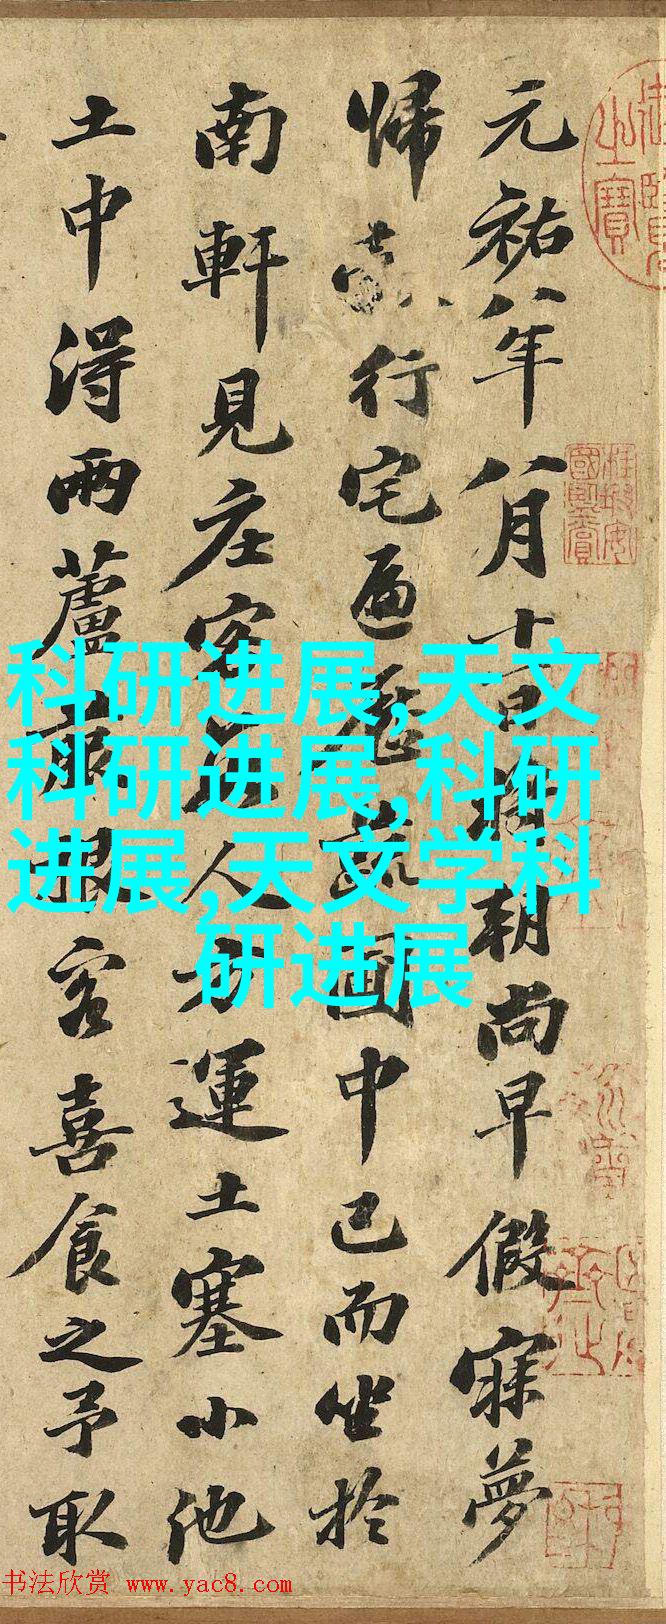 元祐八年八月十日將朝尚早假寐夢
歸行宅遍歷蔬園中已而坐於
南軒見庄客數人方運土塞小池
土中得兩蘆菔根客喜食之予取
科研进展,天文
科研进展,科研
进展,天文学科
研进展
书法欣赏 www.yac8.com